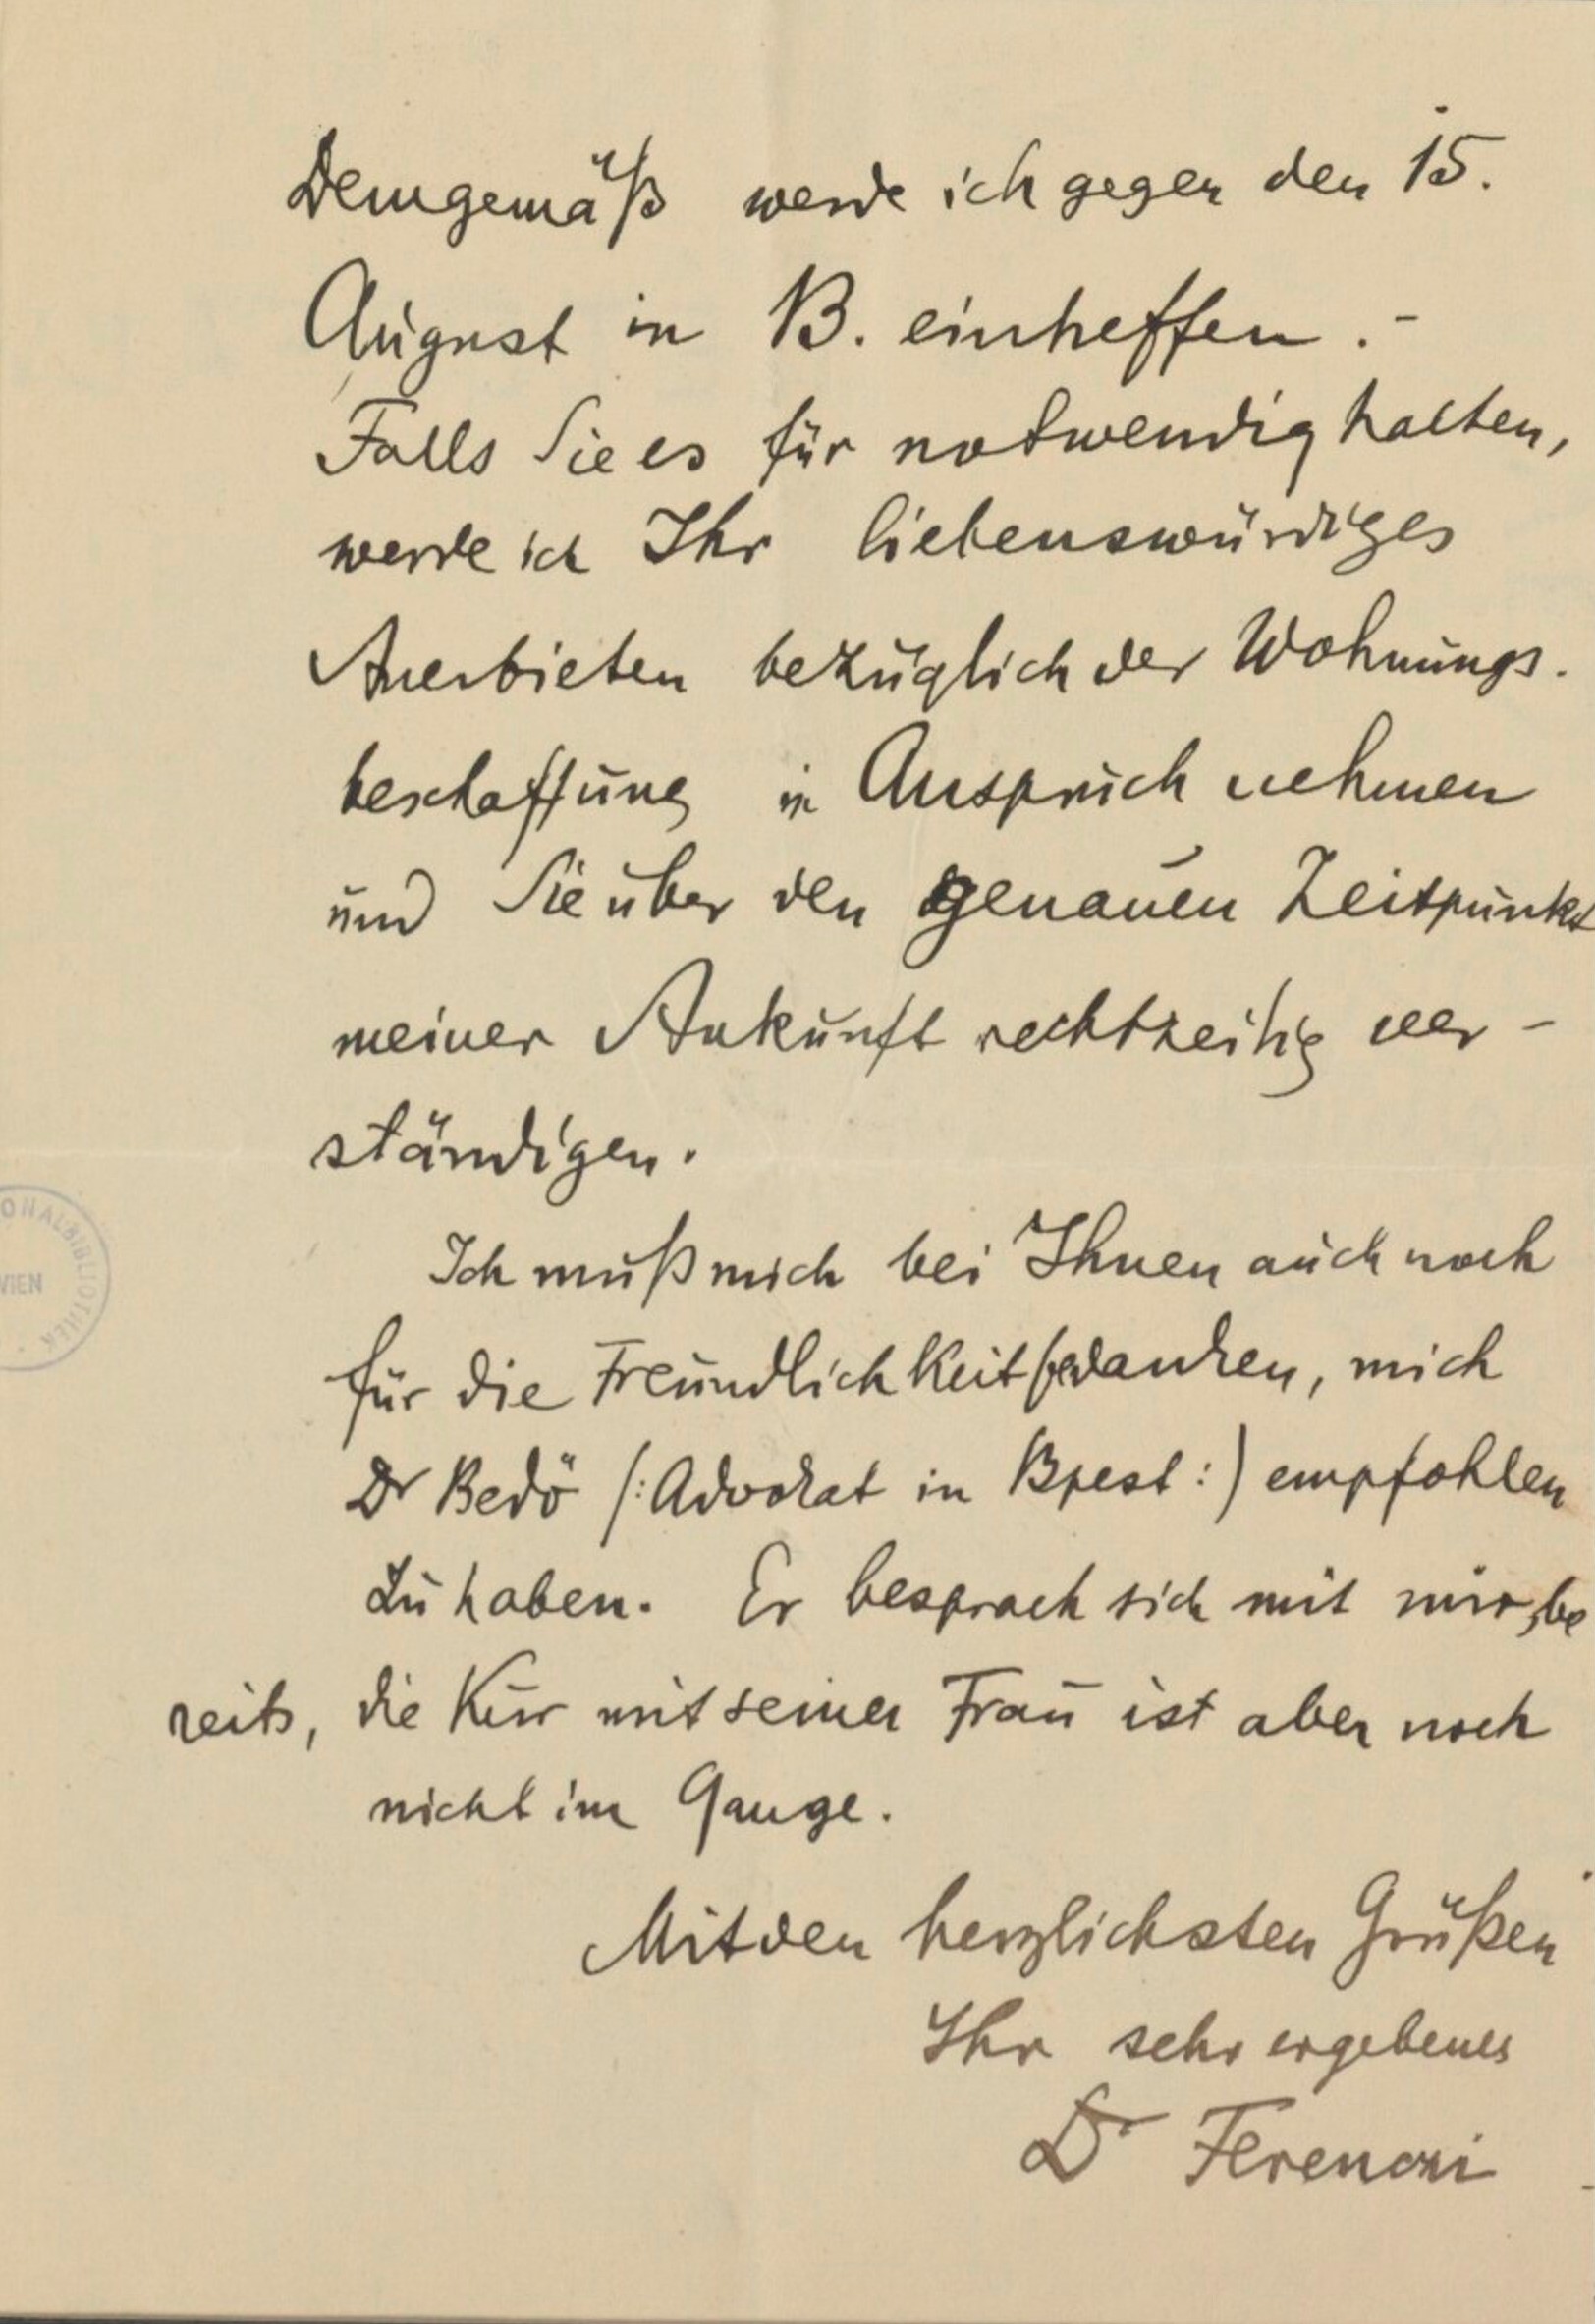 Demgemäß werde ich gegen den 15.
August in B. eintreffen. -
Falls Sie es für notwendig halten,
werde ich Ihr liebenswürdiges
Anerbieten bezüglich der Wohnungs-
beschaffung in Anspruch nehmen
und Sie über den genauen Zeitpunkt
meiner Ankunft rechtzeitig ver-
ständigen.
Ich muß mich bei Ihnen auch noch
für die Freundlichkeit bedanken, mich
Dr Bedö (: Advokat in Bpest :) empfohlen
zu haben. Er besprach sich mit mir, be
reits, die Kur mit seiner Frau ist aber noch
nicht im Gange.
Mit den herzlichsten Grüßen
Ihr sehr ergebener
Dr Ferenczi
ONALBIBLIOTHEK
WIEN